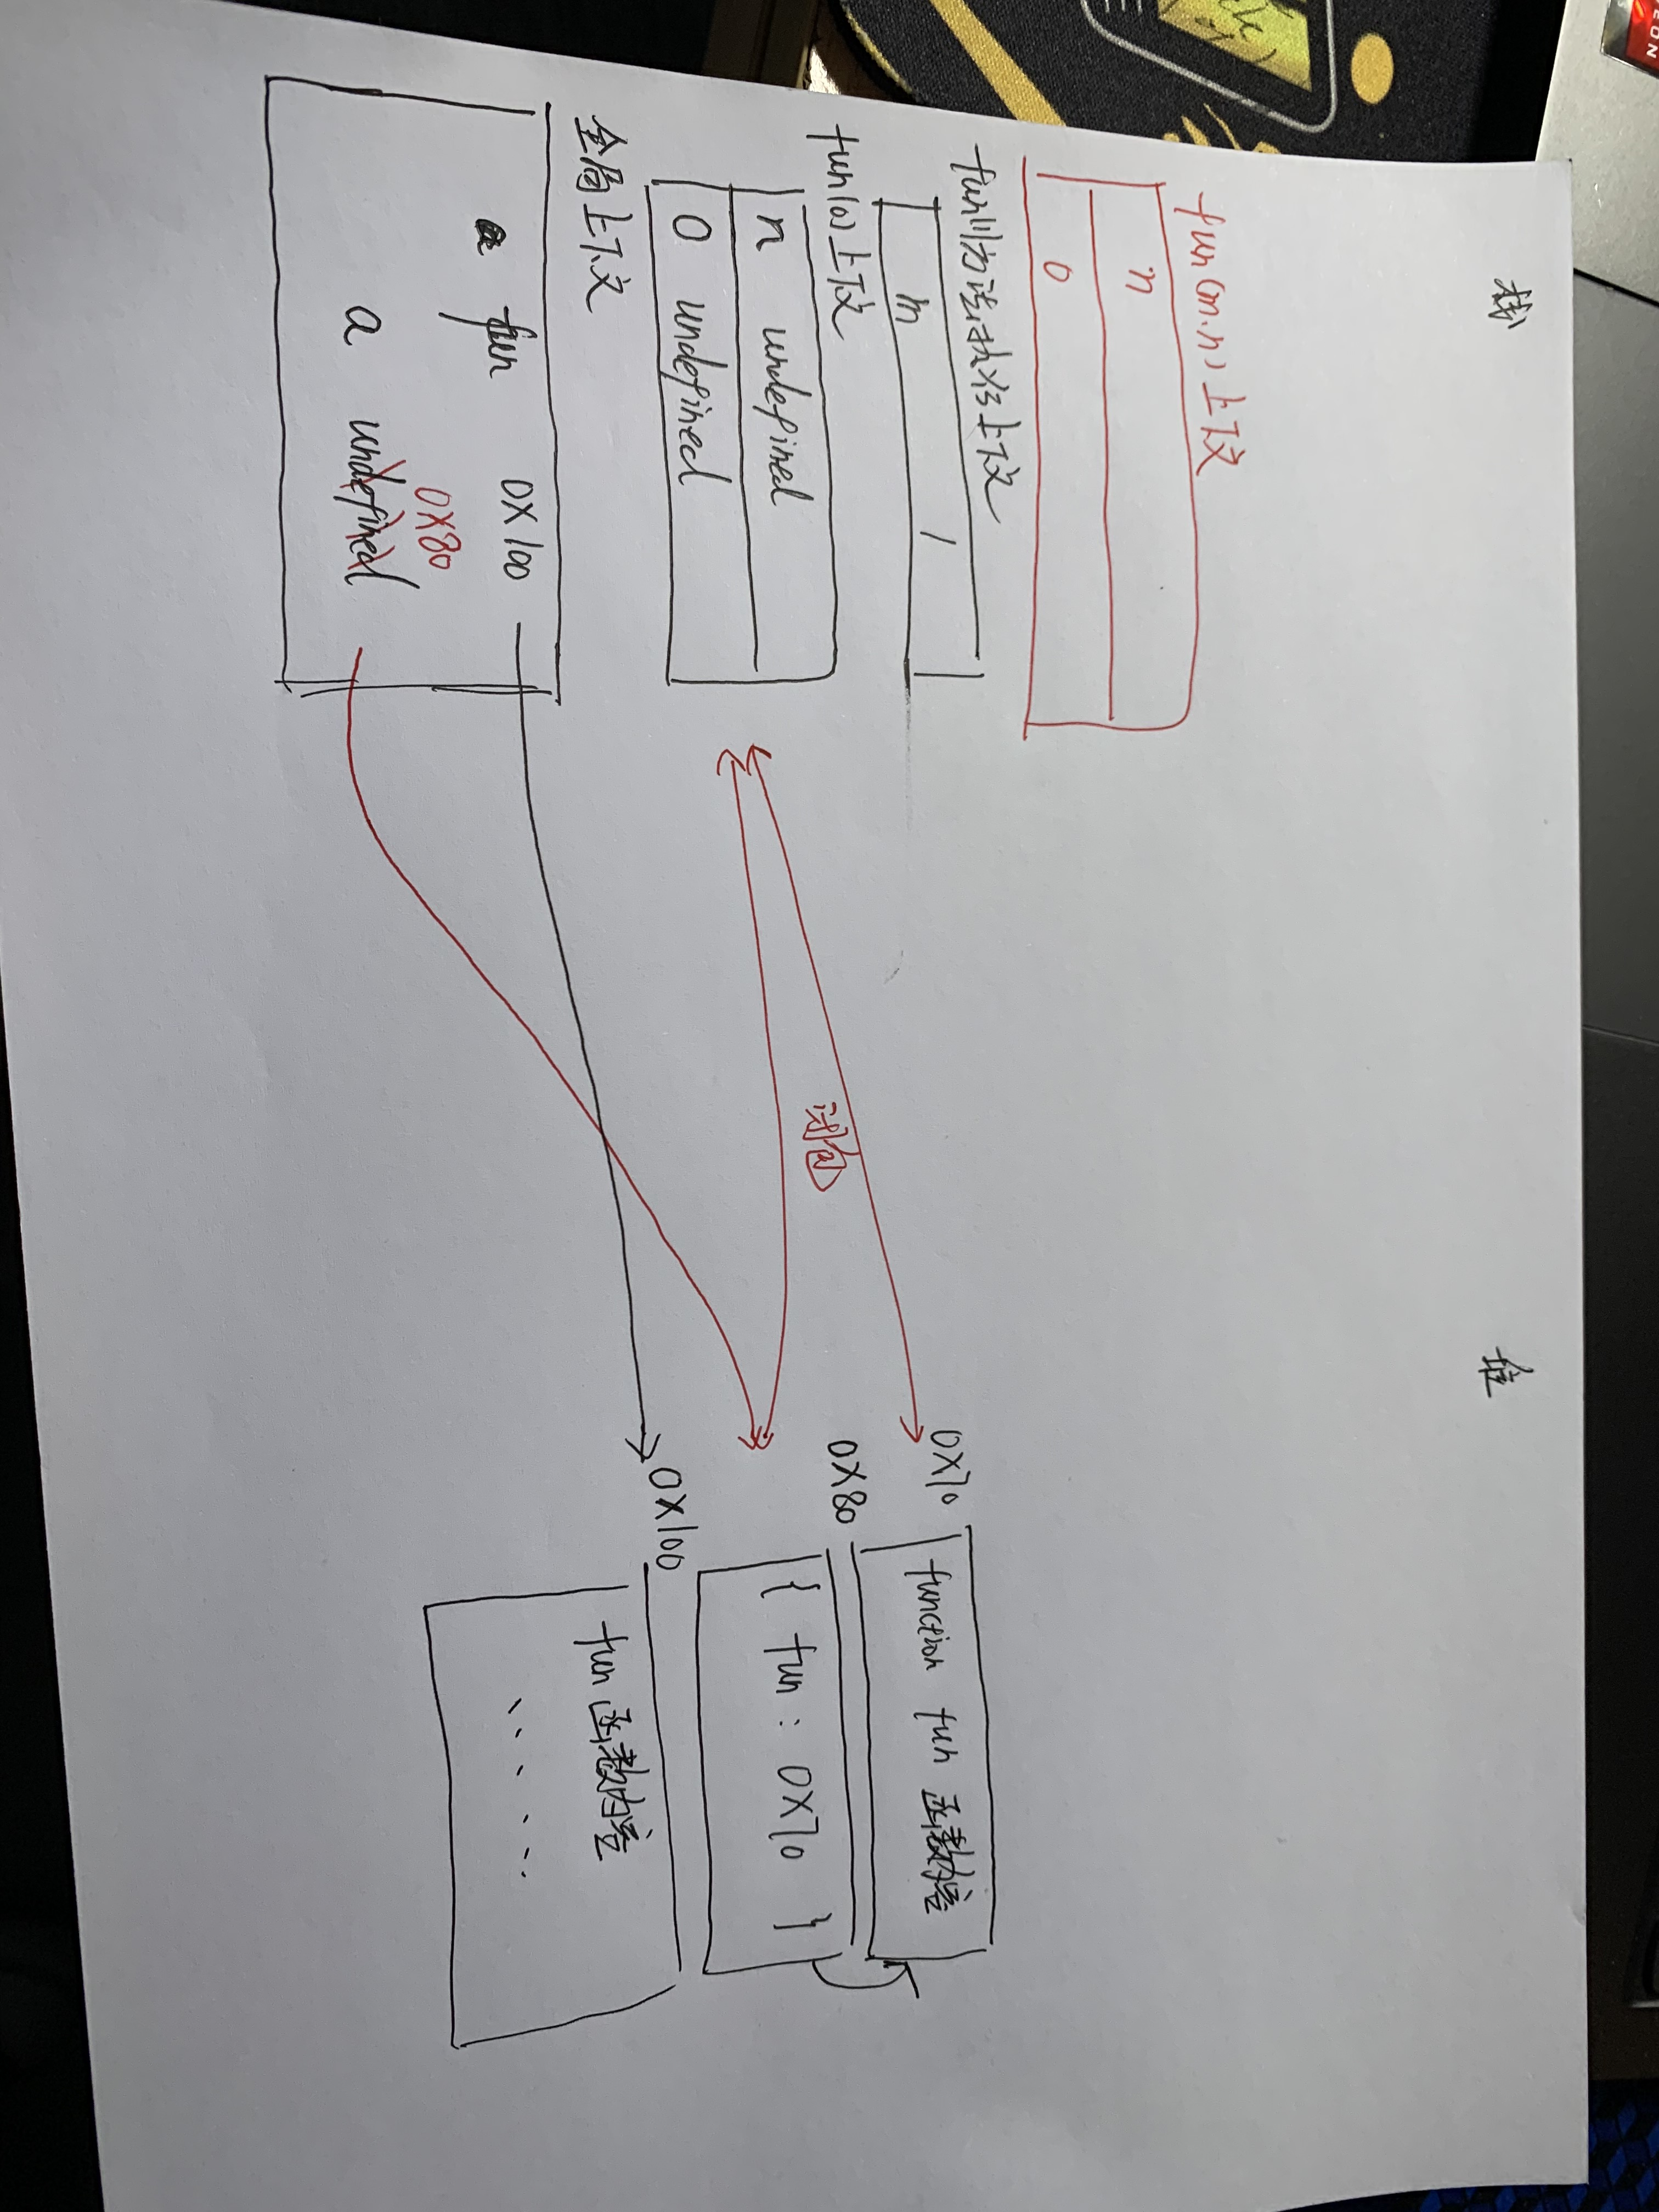 栈
堆
fun(m.n)上下文
n
0
fun(1)方法执行上下文
m 1
fun(0)上下文
n undefined
0 undefined
全局上下文
fun 0X100
0X80
a undefined
闭包
0X70
function fun 函数内容
0X80
{ fun : 0X70 }
0X100
fun 函数内容